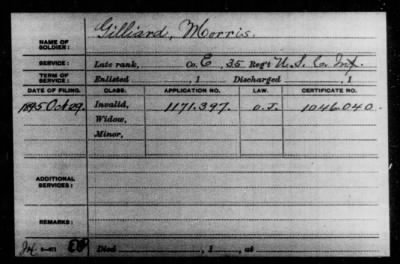 NAME OF SOLDIER: Gilliard, Morris.
SERVICE: Late rank, Co. E, 35 Reg't U.S. Co. Inf.
TERM OF SERVICE: Enlisted , 1 Discharged , 1
DATE OF FILING. CLASS. APPLICATION NO. LAW. CERTIFICATE NO.
1895 Oct 29. Invalid, 1171.397. 1046.040.
Widow,
Minor,
ADDITIONAL SERVICES:
REMARKS:
Died , 1 , at